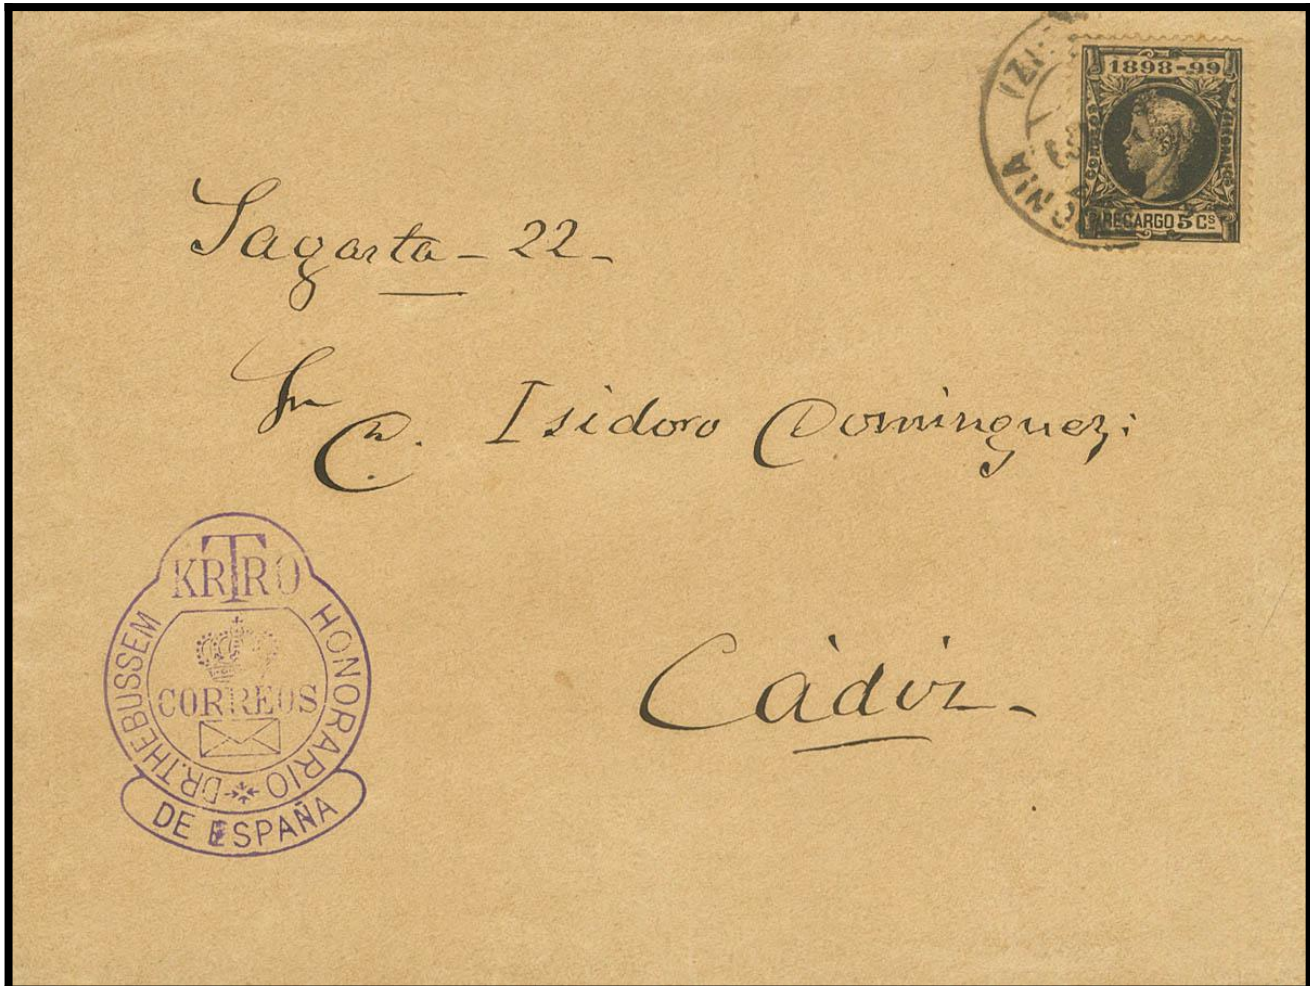 1898-99
CORREOS
RECARGO 5 Cs
Sagasta - 22 -
Sr
Dn. Isidoro Dominguez;
Cádiz -
KRTRO
DR. THEBUSSEM
HONORARIO
CORREOS
DE ESPAÑA